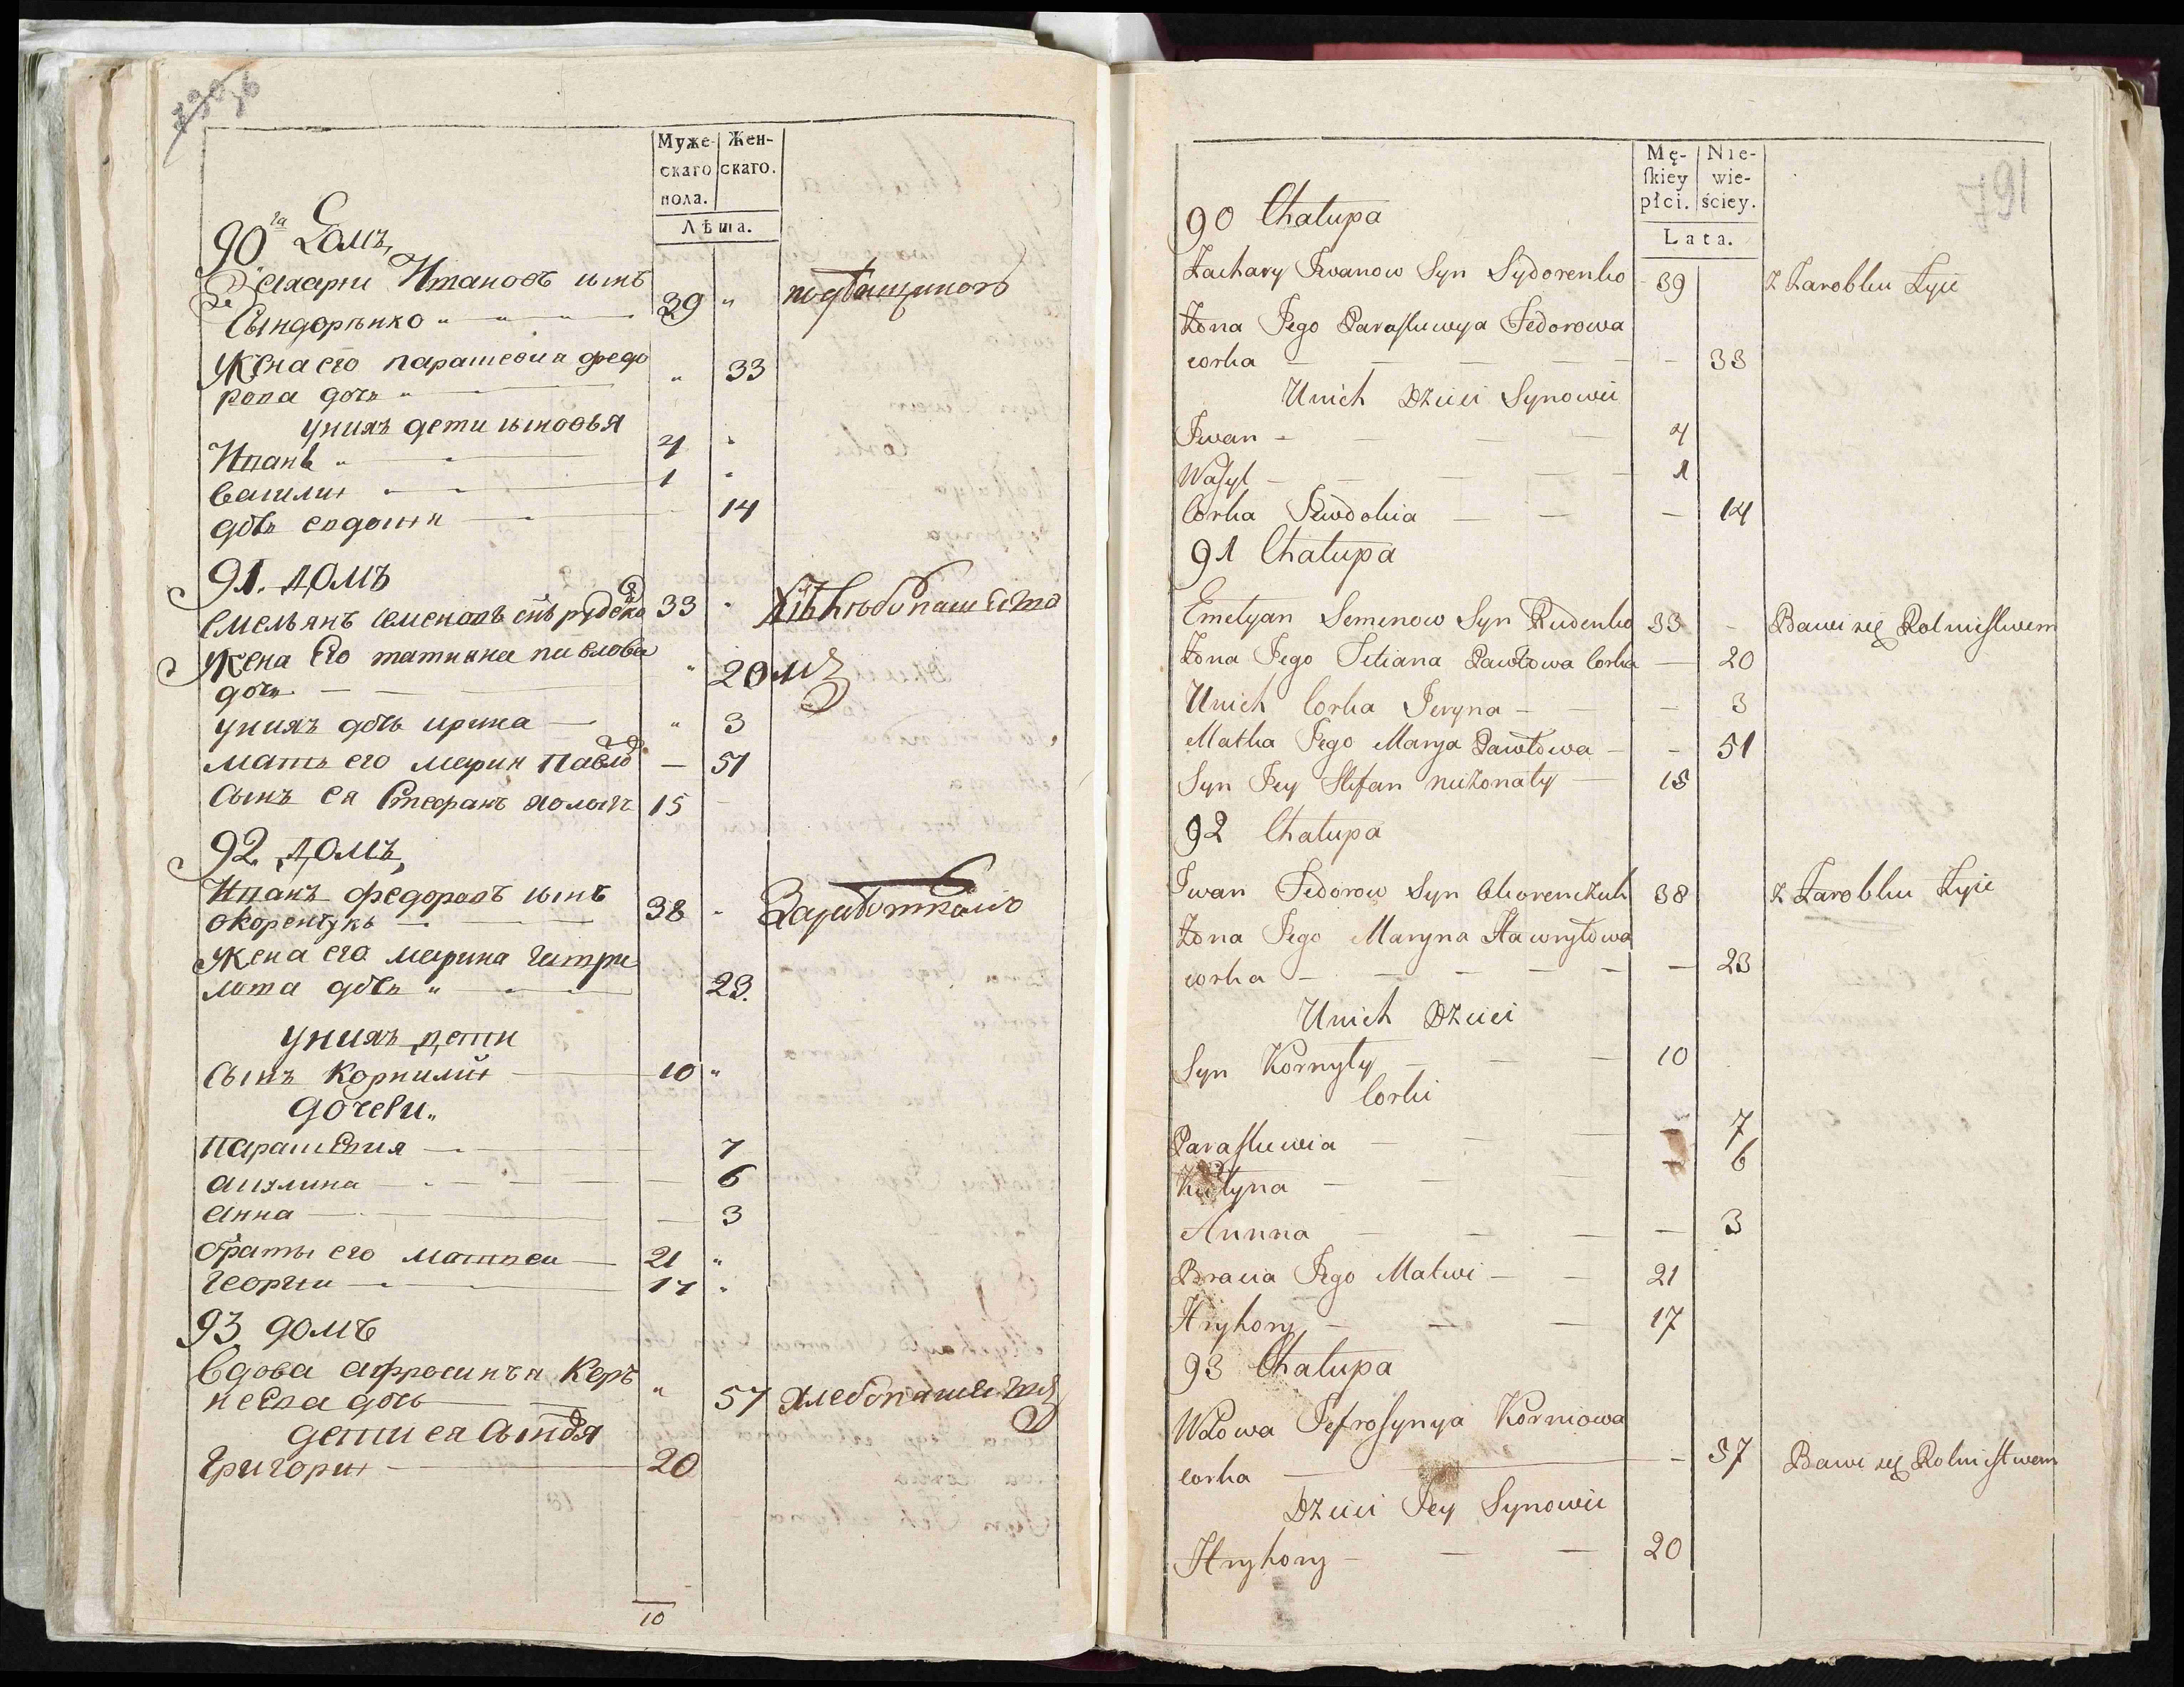 Муже- Жен-
скаго скаго.
пола.
Лѣта.
90 га Домъ,
Захарии Ивановъ сынъ
Сыидоренко " " " 39 "
Жена его парашевиа федо
рова дочь " " 33
унихъ дети сыновья
Иванъ " " 4 "
василии 1 "
дочь евдокия 14
91. домъ
Емельянъ семеновъ снъ рудеко 33 " хлѣбопашеств
Жена его татиана павлова " 20 мъ
дочь
унихъ дочь ирина " 3
мать его мария павло — 51
Сынъ ея Стефанъ холост 15 —
92. домъ,
Иванъ федоровъ сынъ
окоренчукъ 38 " Заработкомъ
жена его марина гаври
лова дочь " 23.
унихъ дети
сынъ корнилий 10 "
дочери "
парашевия 7
акилина 6
анна — 3
браты его матвеи 21 "
георгии 17 "
93 домъ
вдова афросиния Кор
неева дочь " 57 хлебопашеств
дети ея сыновя
григории 20
10
167
Mę- Nie-
skiey wie-
płci. ściey.
Lata.
90 Chałupa
Zachary Iwanow Syn Sydorenko 39 z Zarobku Żyie
Żona Jego Paraskiewya Fedorowa
corka — — — — — 33
Unich Dzieci Synowie
Iwan — — — — 4
Wasyl — — — — 1
Corka Jewdokia — — — 14
91 Chałupa
Emelyan Semenow Syn Rudenko 33 — Bawi się Rolnictwem
Żona Jego Tetiana Pawłowa Corka — 20
Unich Corka Jeryna — — — 3
Matka Jego Marya Pawłowa — — 51
Syn Jey Stefan nieżonaty — 15
92 Chałupa
Iwan Fedorow Syn Okorenczuk 38 z Zarobku Żyie
Żona Jego Maryna Hawryłowa
corka — — — — — — 23
Unich Dzieci
Syn Kornyły — — — 10
Corki
Paraskiewia — — — — 7
Kiłyna — — — — 6
Annna — — — — 3
Bracia Jego Matwi — — 21
Hryhory — — — 17
93 Chałupa
Wdowa Jefrosynya Korniowa
corka — — 57 Bawi się Rolnictwem
Dzieci Jey Synowie
Hryhory — — — 20